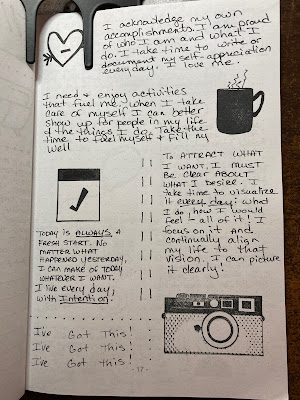 I acknowledge my own
accomplishments. I am proud
of who I am and what I
do. I take time to write or
document my self-appreciation
everyday. I love me.
I need & enjoy activities
that fuel me. When I take
care of myself I can better
show up for people in my life
& the things I do. Take the
time to fuel myself & fill my
well
To ATTRACT WHAT
I WANT, I MUST
BE CLEAR ABOUT
WHAT I DESIRE. I
take time to visualize
it every day: what
I do, how I would
feel - all of it! I
focus on it and
continually align
my life to that
vision. I can picture
it clearly!
TODAY IS ALWAYS A
FRESH START. NO
MATTER WHAT
HAPPENED YESTERDAY,
I CAN MAKE OF TODAY
WHATEVER I WANT.
I live every day
with Intention!
I've Got This!
I've Got This!
I've Got This!
-17-